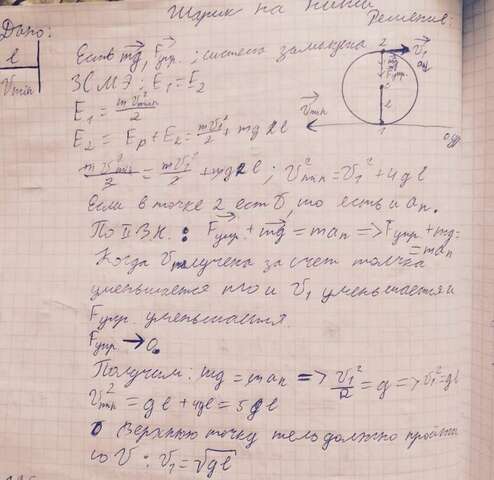 Шарик на нити
Дано: Решение:
l
V min
Есть mg, F упр.; система замкнута
ЗСМЭ: E₁ = E₂
E₁ = mV²min/2
E₂ = Eр + E₂ = mV₁²/2 + mg2l
mV²min/2 = mV₁²/2 + mg2l; V²min = V₁² + 4gl
Если в точке 2 есть V, то есть и aп.
По II З.Н.: Fупр. + mg = maп => Fупр. + mg =
= maп
Когда V получена за счет толчка
уменьшается то и V₁ уменьшается и
Fупр. уменьшается.
Fупр. → 0.
Получим: mg = maп => V₁²/R = g => V₁² = gl
V²min = gl + 4gl = 5gl
Верхнюю точку тело должно пройти
со V: V₁ = √gl
2 V₁
Fупр.
l
V min
1